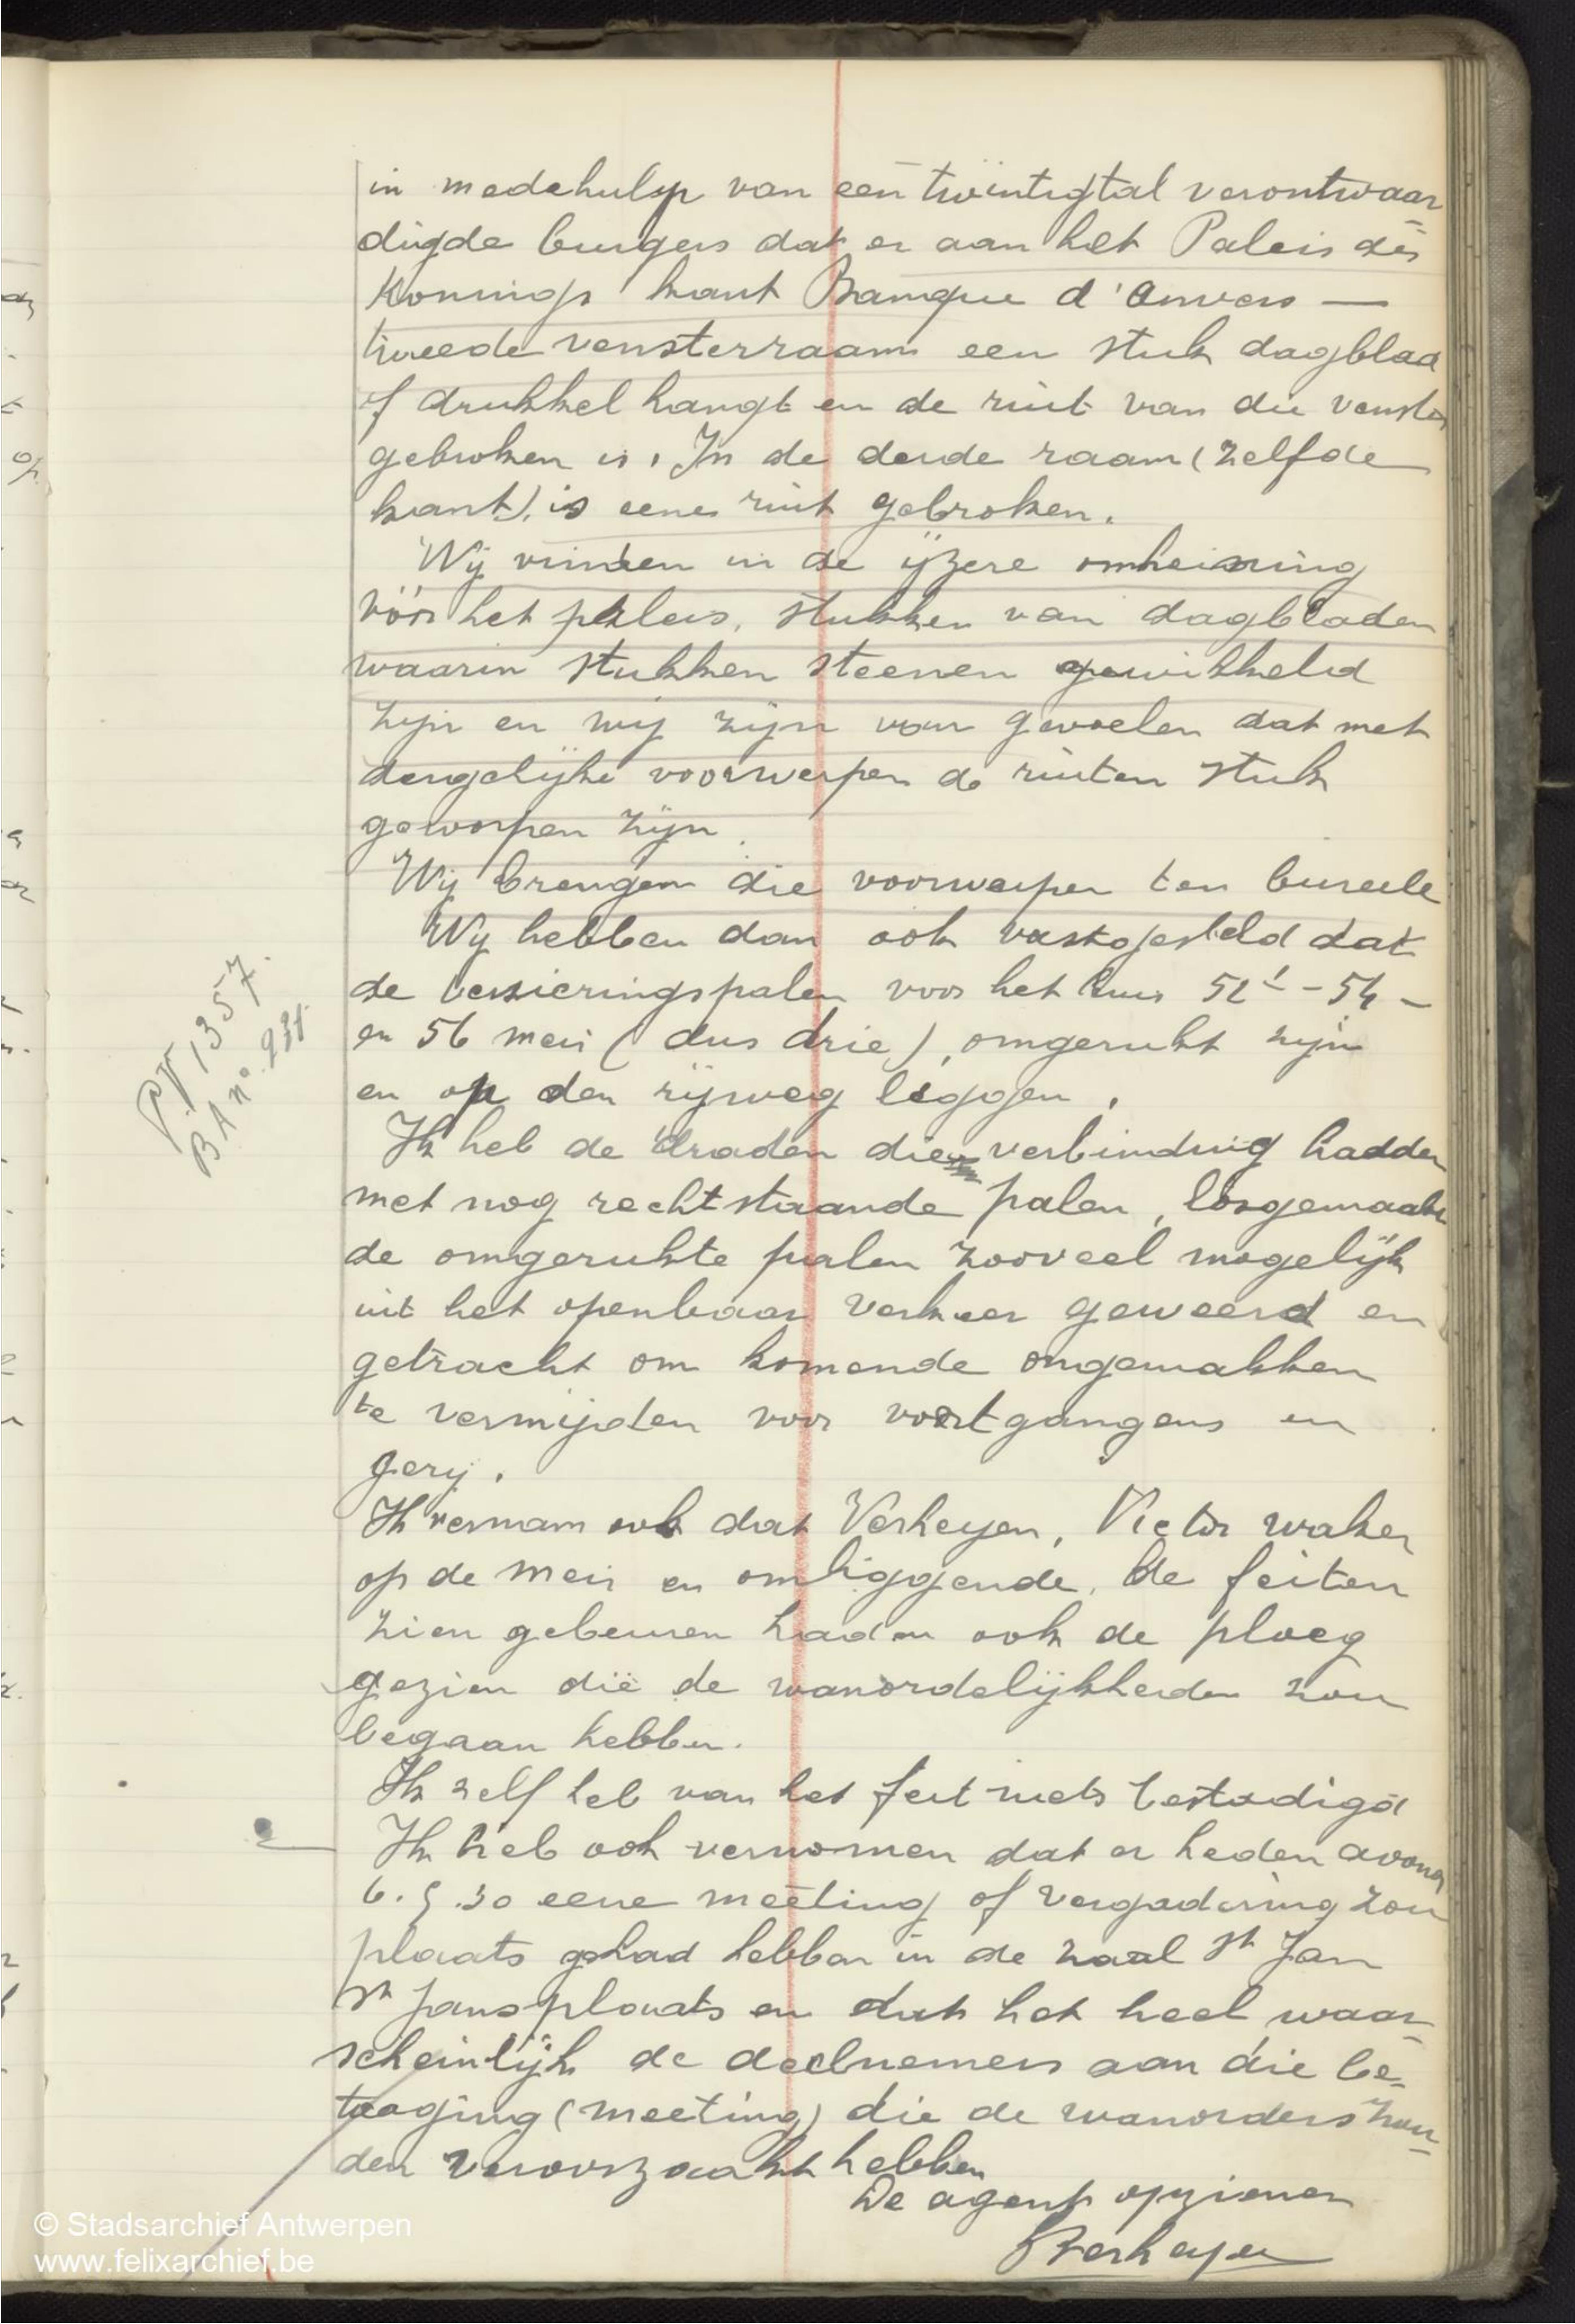 in medehulp van een twintigtal verontwaar
digde burgers dat er aan het Paleis des
Konings kant Banque d'Anvers —
tweede vensterraam een stuk dagblad
of drukkel hangt en de ruit van die venster
gebroken is. In de derde raam (zelfde
kant), is eene ruit gebroken.
Wij vinden in de ijzere omheining
vóór het paleis, stukken van dagbladen
waarin stukken steenen gewikkeld
zijn en wij zijn van gevoelen dat met
dergelijke voorwerpen de ruiten stuk
geworpen zijn.
Wij brengen die voorwerpen ten bureele
Wij hebben dan ook vastgesteld dat
de versieringspalen voor het huis 52 - 54 -
en 56 meir (dus drie), omgerukt zijn
en op den rijweg liggen.
PV 1357.
BA n° 931.
Ik heb de draden die verbinding hadden
met nog rechtstaande palen, losgemaakt
de omgerukte palen zooveel mogelijk
uit het openbaar verkeer geweerd en
getracht om komende ongemakken
te vermijden voor voortgangers en
gerij.
Ik vernam ook dat Verheyen, Victor waker
op de Meir en omliggende, de feiten
zien gebeuren hadden ook de ploeg
gezien die de wanordelijkheden zou
begaan hebben.
Ik zelf heb van het feit niets bestadigd
Ik heb ook vernomen dat er heden avond
6.30 eene meeting of vergadering zou
plaats gehad hebben in de zaal St Jan
St Jansplaats en dat het heel waar
scheinlijk de deelnemers aan die be-
tooging (meeting) die de wanorders zou-
den veroorzaakt hebben
De agent opziener
Verheyen
© Stadsarchief Antwerpen
www.felixarchief.be